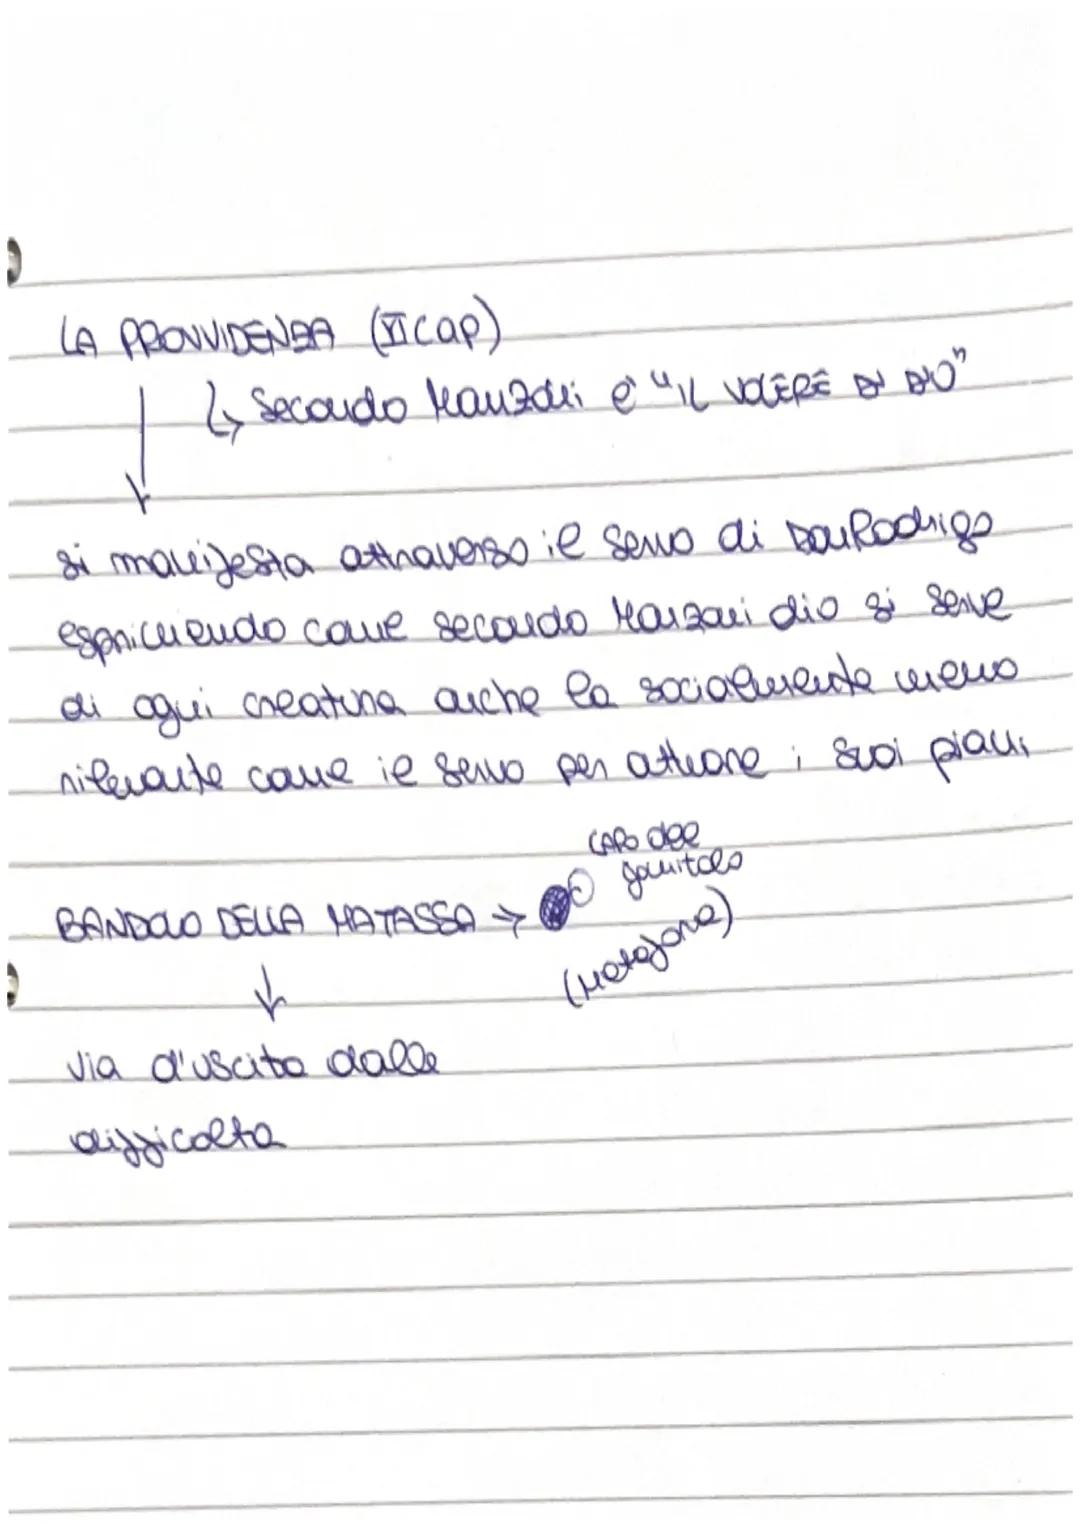 LA PROVVIDENZA (VI cap)
↳ Secondo Manzoni è "IL VOLERE DI DIO"
si manifesta attraverso il servo di Don Rodrigo
esprimendo come secondo Manzoni dio si serve
di ogni creatura anche la socialmente meno
rilevante come il servo per attuare i suoi piani
CAPO del
gomitolo
BANDOLO DELLA MATASSA →
(Metafora)
via d'uscita dalle
difficolta